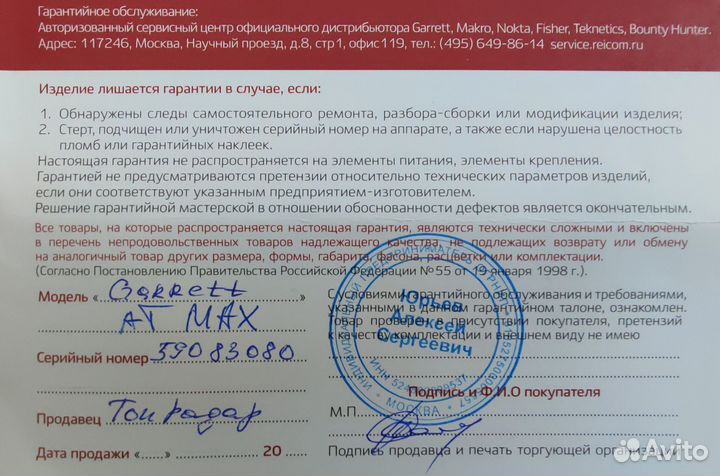 Гарантийное обслуживание:
Авторизованный сервисный центр официального дистрибьютора Garrett, Makro, Nokta, Fisher, Teknetics, Bounty Hunter.
Адрес: 117246, Москва, Научный проезд, д.8, стр1, офис 119, тел.: (495) 649-86-14 service.reicom.ru
Изделие лишается гарантии в случае, если:
1. Обнаружены следы самостоятельного ремонта, разбора-сборки или модификации изделия;
2. Стерт, подчищен или уничтожен серийный номер на аппарате, а также если нарушена целостность
пломб или гарантийных наклеек.
Настоящая гарантия не распространяется на элементы питания, элементы крепления.
Гарантией не предусматриваются претензии относительно технических параметров изделий,
если они соответствуют указанным предприятием-изготовителем.
Решение гарантийной мастерской в отношении обоснованности дефектов является окончательным.
Все товары, на которые распространяется настоящая гарантия, являются технически сложными и включены
в перечень непродовольственных товаров надлежащего качества, не подлежащих возврату или обмену
на аналогичный товар других размера, формы, габарита, фасона, расцветки или комплектации.
(Согласно Постановлению Правительства Российской Федерации №55 от 19 января 1998 г.).
Модель « Garrett
AT MAX
Серийный номер 59083080
Продавец Топ радар
Дата продажи «.....» 20
С условиями гарантийного обслуживания и требованиями,
указанными в данном гарантийном талоне, ознакомлен.
Товар проверен в присутствии покупателя, претензий
к качеству комплектации и внешнему виду не имею
Подпись и Ф.И.О покупателя
М.П.
Подпись продавца и печать торгующей организации
ИНДИВИДУАЛЬНЫЙ ПРЕДПРИНИМАТЕЛЬ
Юрьев
Алексей
Сергеевич
ИНН
МОСКВА
Avito